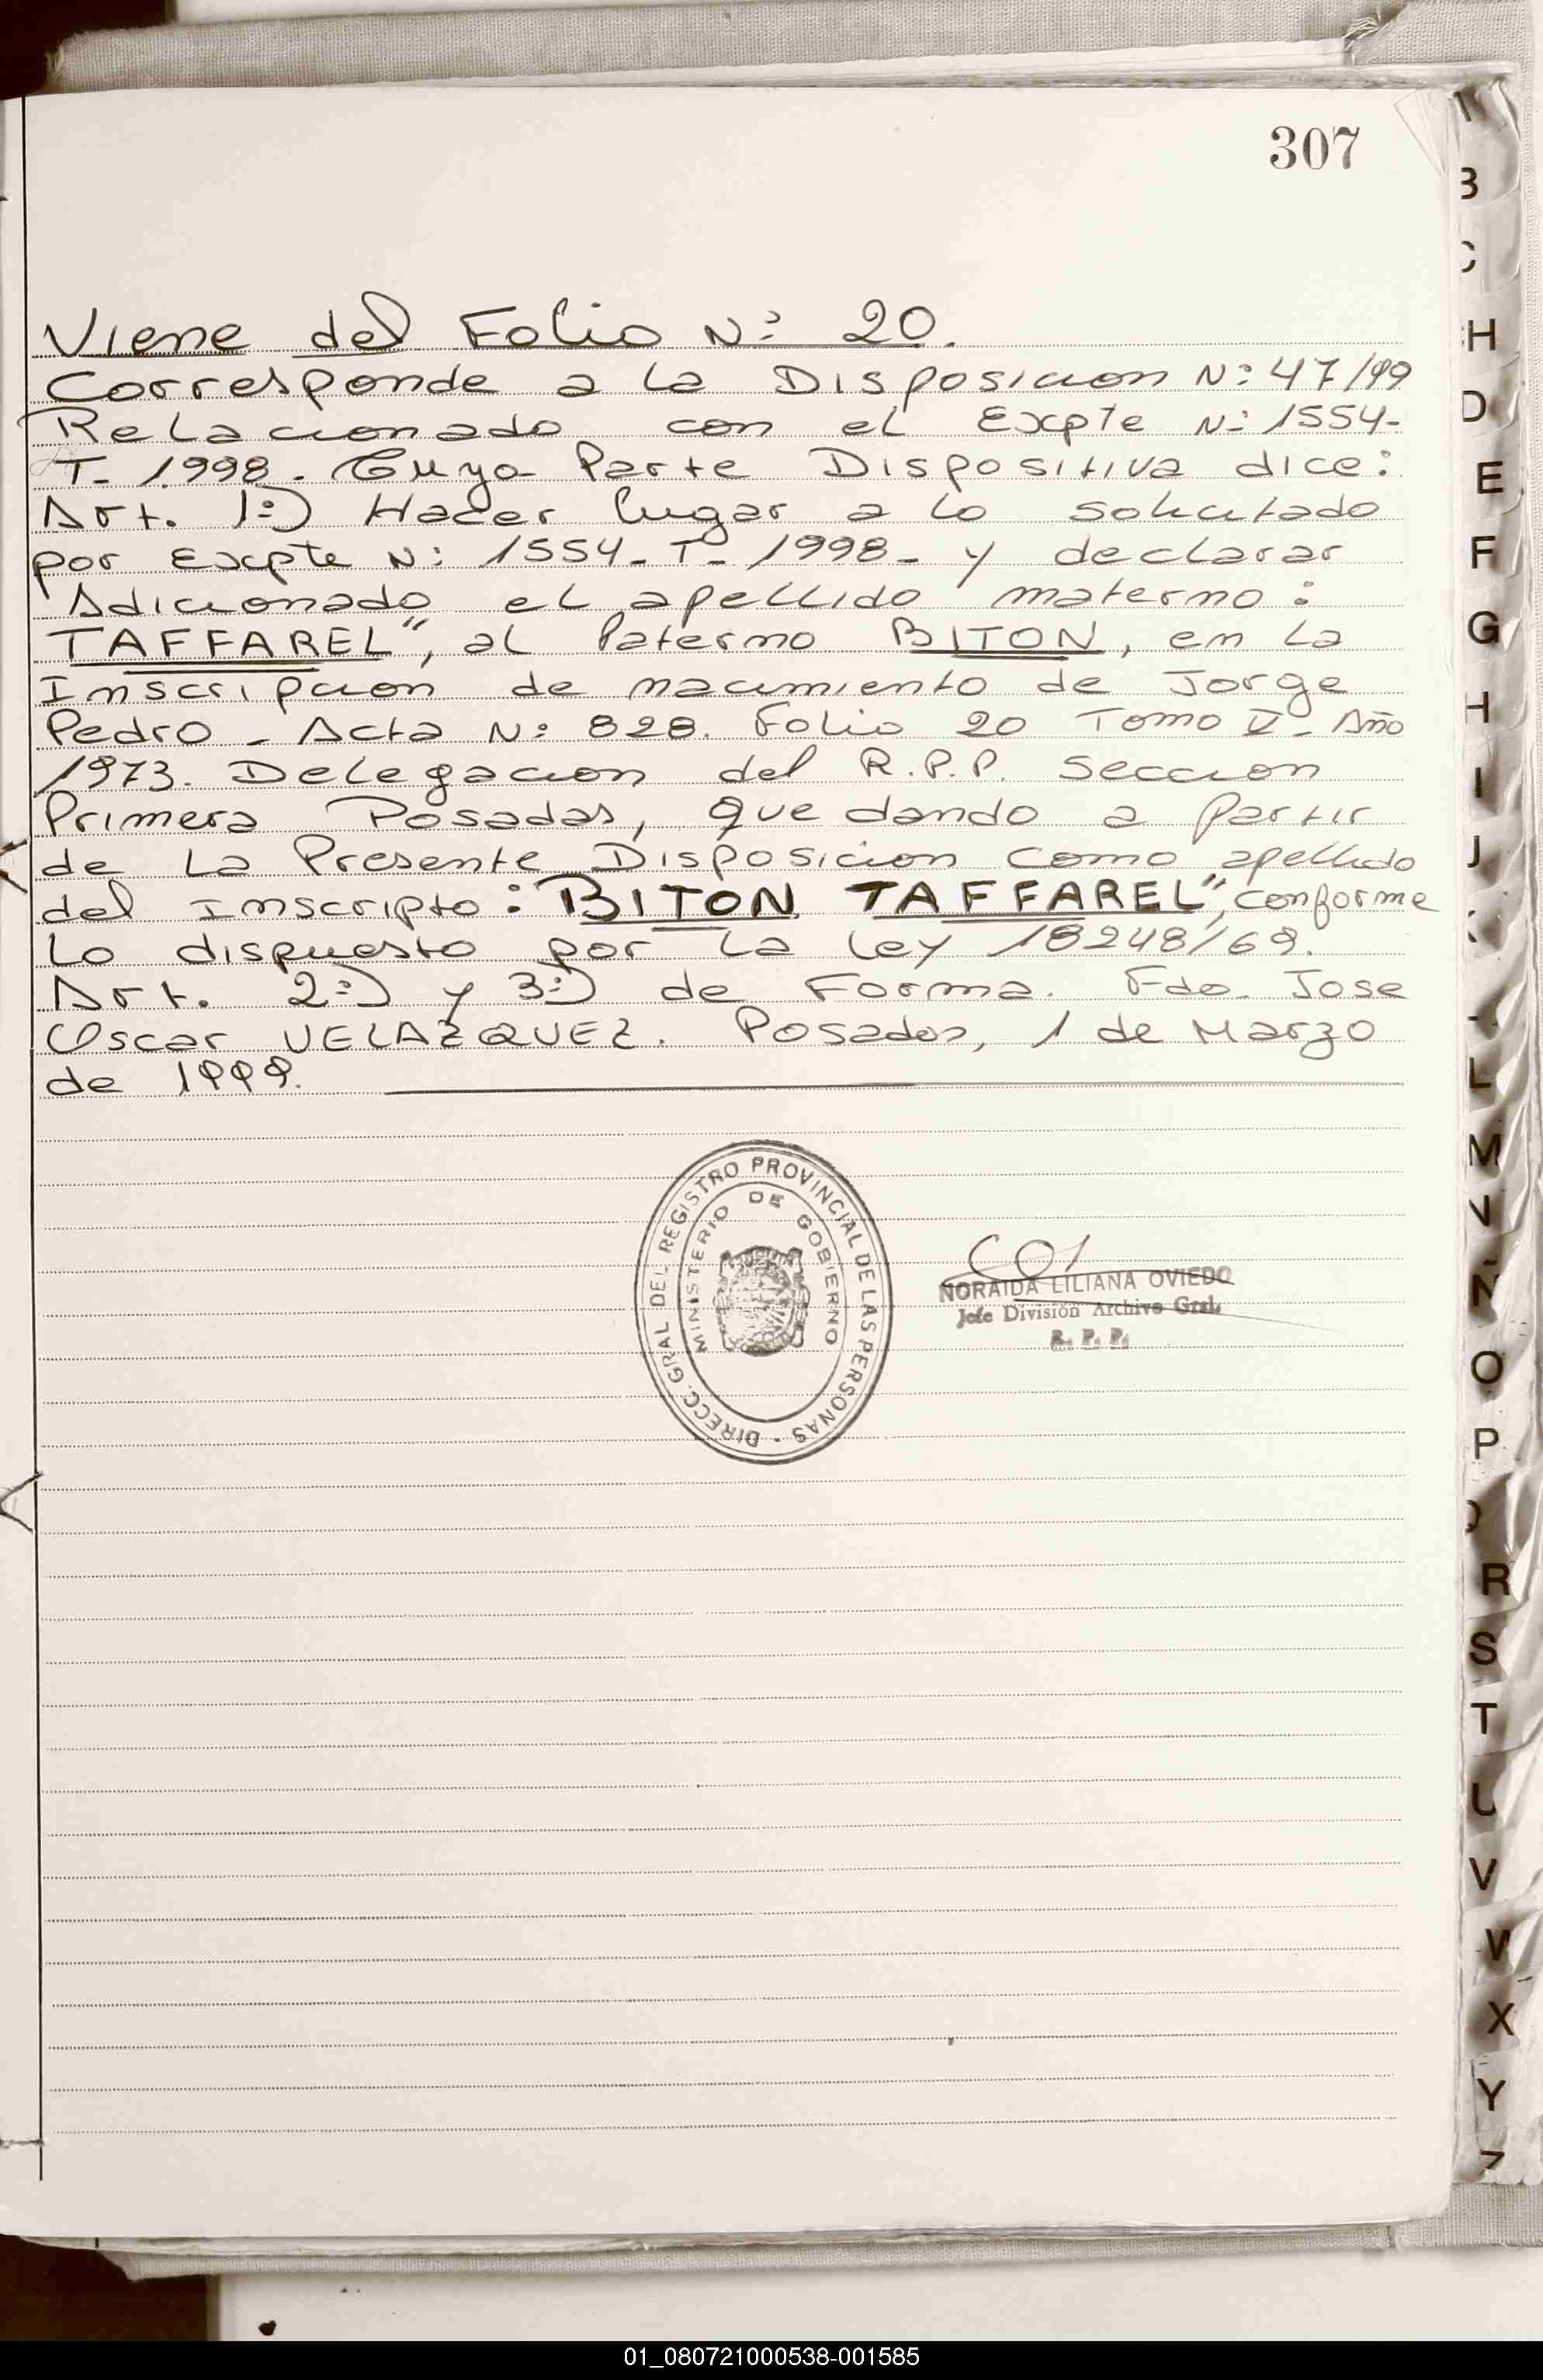 307
Viene del Folio Nº 20.
Corresponde a la Disposicion Nº 47/99
Relacionado con el Expte Nº 1554-
T- 1998. Cuya Parte Dispositiva dice:
Art. 1º) Hacer lugar a lo solicitado
por Expte Nº 1554-T-1998- y declarar
Adicionado el apellido materno:
TAFFAREL", al Paterno BITON, en la
Inscripcion de nacimiento de Jorge
Pedro - Acta Nº 828. Folio 20 Tomo V - Año
1973. Delegacion del R.P.P. Seccion
Primera Posadas, quedando a Partir
de la Presente Disposicion como apellido
del Inscripto: "BITON TAFFAREL", conforme
Lo dispuesto por la Ley 18248/69.
Art. 2º) y 3º) de Forma. Fdo. Jose
Oscar VELAZQUEZ. Posadas, 1 de Marzo
de 1999.
DIRECC. GRAL DEL REGISTRO PROVINCIAL DE LAS PERSONAS -
MINISTERIO DE GOBIERNO
NORAIDA LILIANA OVIEDO
Jefe División Archivo Gral.
R. P. P.
B
C
H
D
E
F
G
H
I
J
L
M
N
O
P
R
S
T
U
V
W
X
Y
Z
01_080721000538-001585